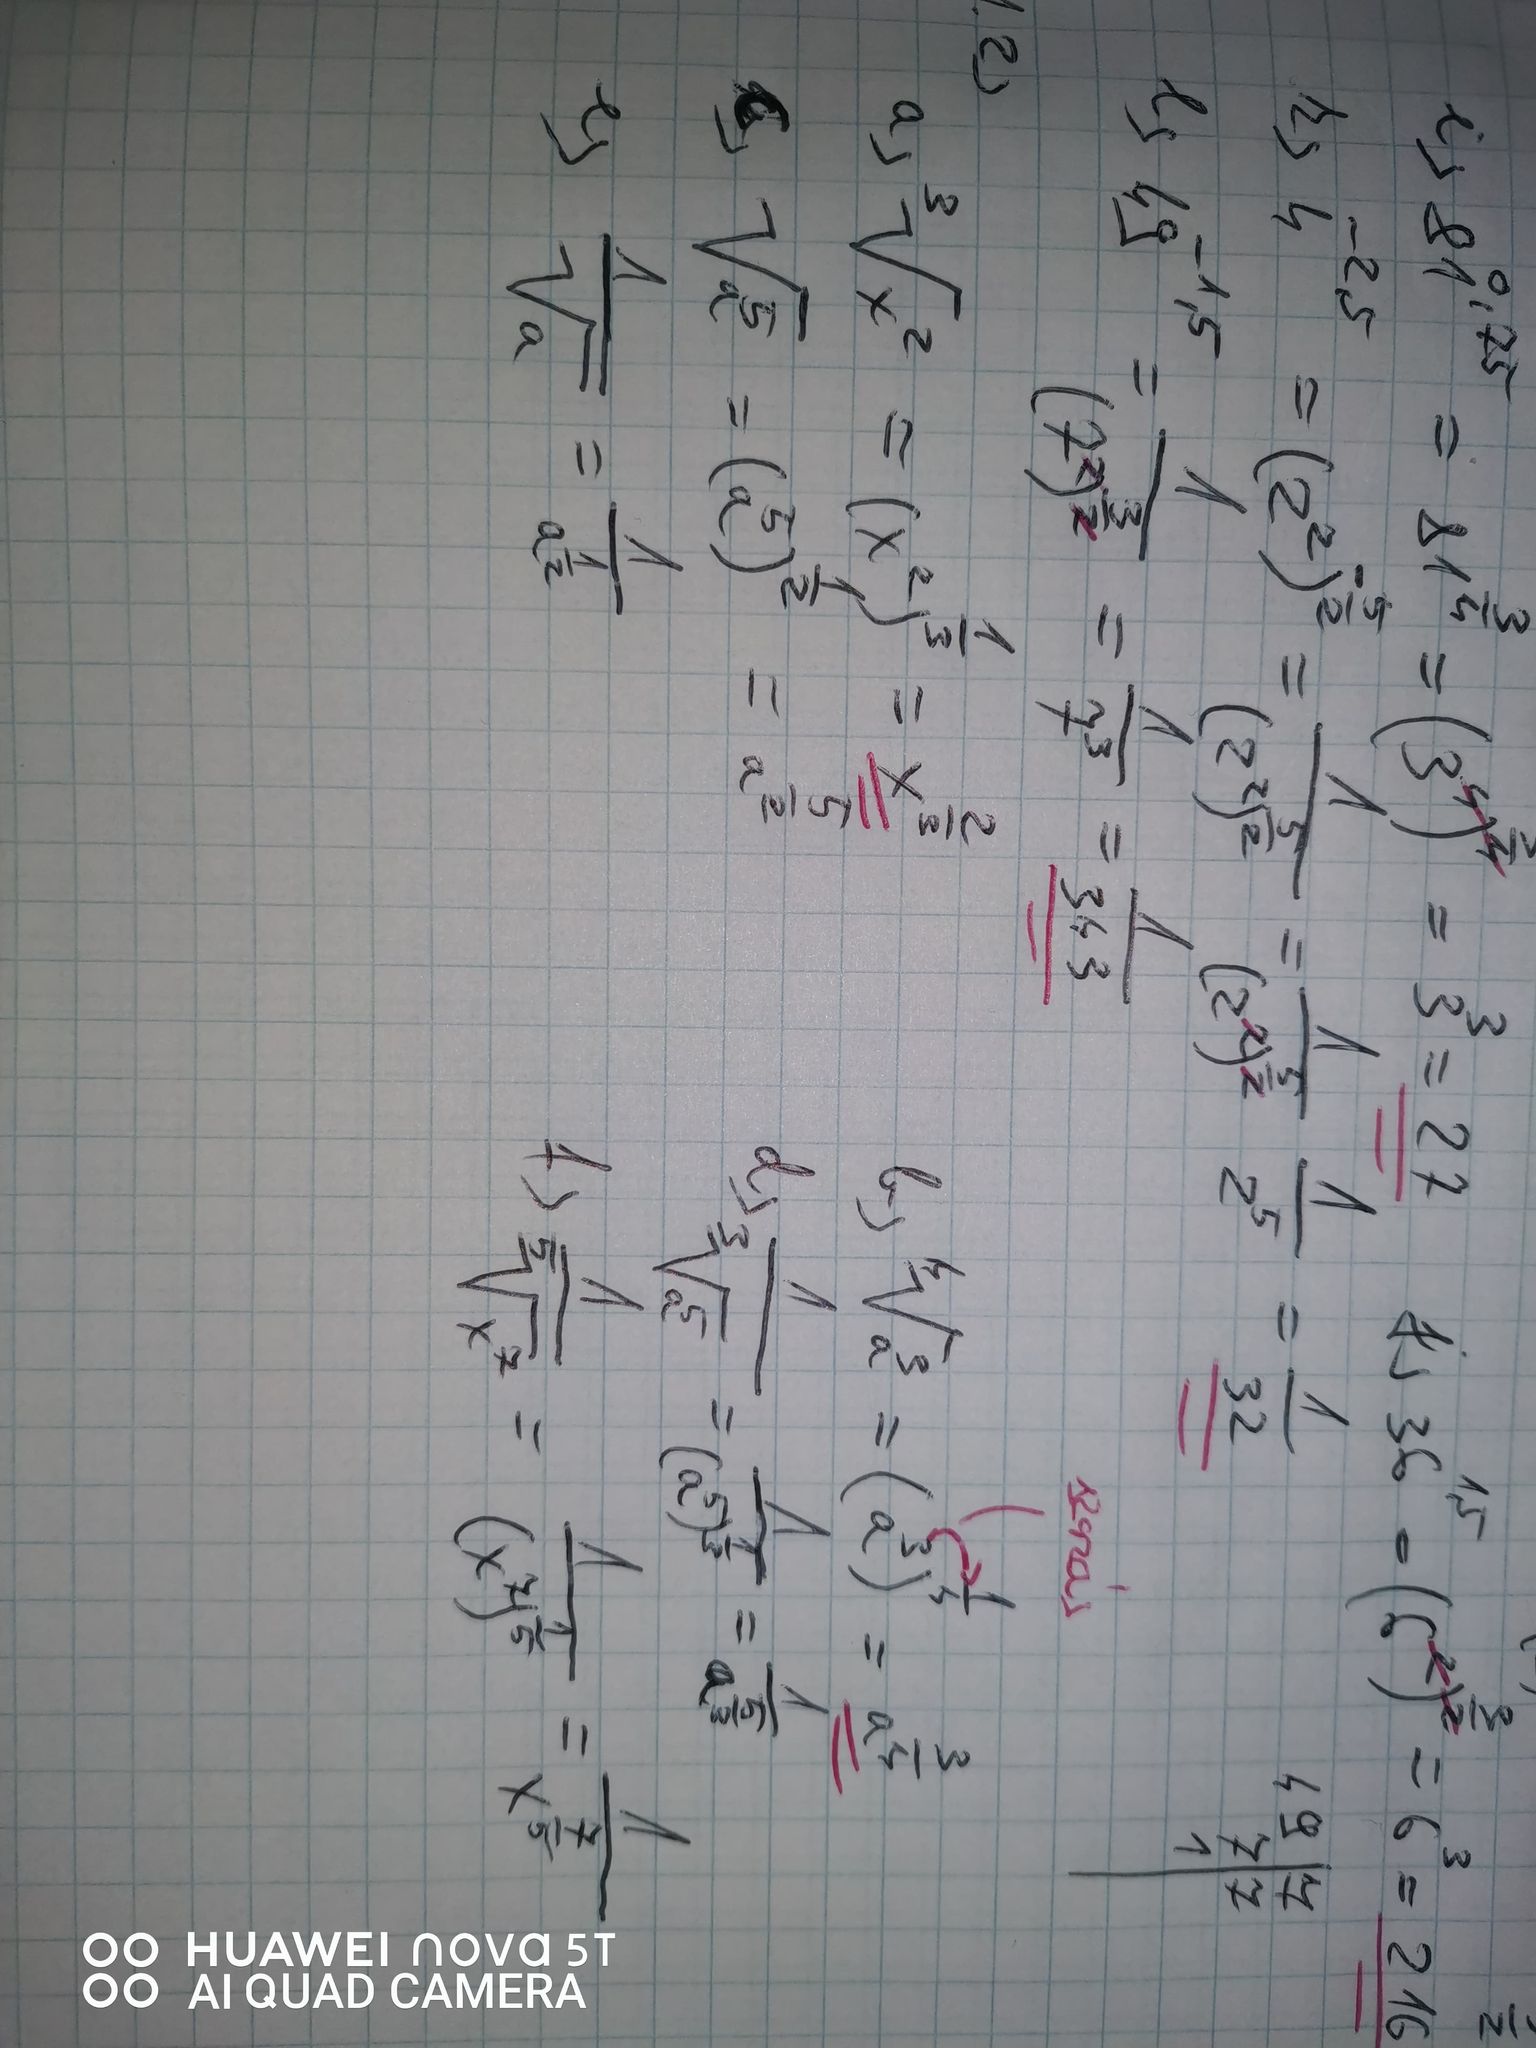 i) 81^0,75 = 81^(3/4) = (3^4)^(3/4) = 3^3 = 27
j) 36^1,5 = (6^2)^(3/2) = 6^3 = 216
k) 4^-2,5 = (2^2)^(-5/2) = 1/(2^2)^(5/2) = 1/(2^2)^(5/2) 1/2^5 = 1/32
l) 49^-1,5 = 1/(7^2)^(3/2) = 1/7^3 = 1/343
49 | 7
7 | 7
1
szorzás
a) ³√x^2 = (x^2)^(1/3) = x^(2/3)
b) ⁴√a^3 = (a^3)^(1/4) = a^(3/4)
c) √a^5 = (a^5)^(1/2) = a^(5/2)
d) 1/³√a^5 = 1/(a^5)^(1/3) = 1/a^(5/3)
e) 1/√a = 1/a^(1/2)
f) 1/⁵√x^7 = 1/(x^7)^(1/5) = 1/x^(7/5)
HUAWEI nova 5T
AI QUAD CAMERA